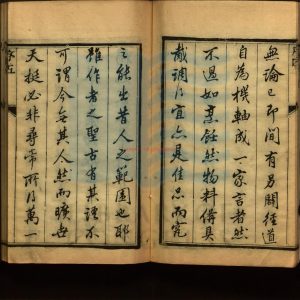 無論已即間有另闢徑道
自為機軸成一家言者然
不過如烹飪然物料備具
調得宜亦是佳品而究
之能出昔人之範圍也耶
雖作者之聖古其不
可謂今無其人然而曠世
天挺必非尋常所得萬一